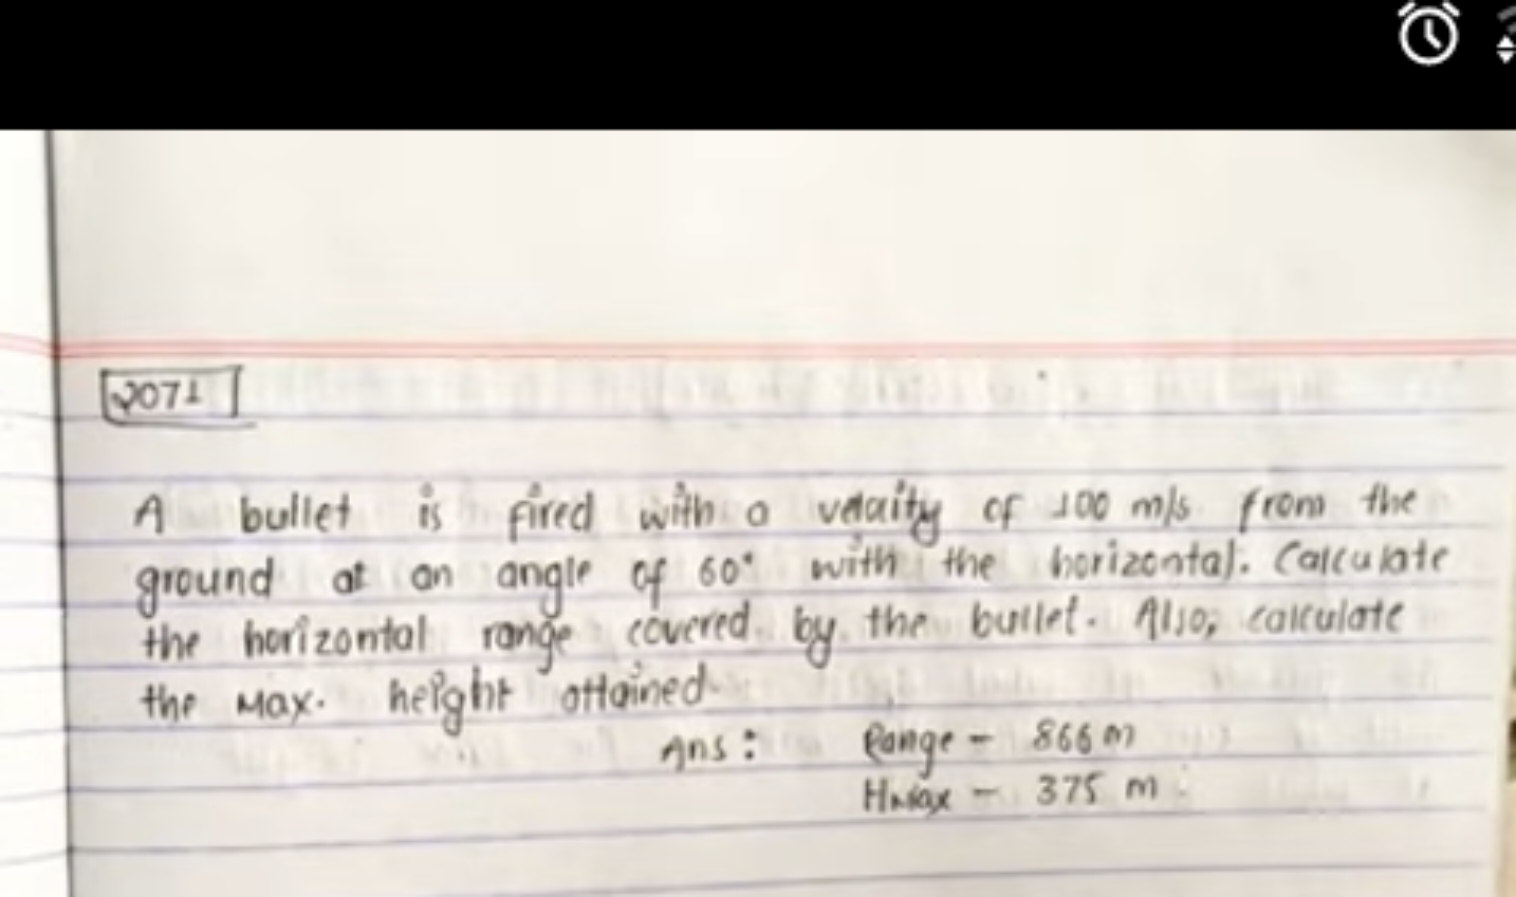 2071
A bullet is fired with a velocity of 100 m/s from the
ground at an angle of 60° with the horizontal. Calculate
the horizontal range covered by the bullet. Also, calculate
the Max. height attained.
Ans : Range - 866 m
HMax - 375 m